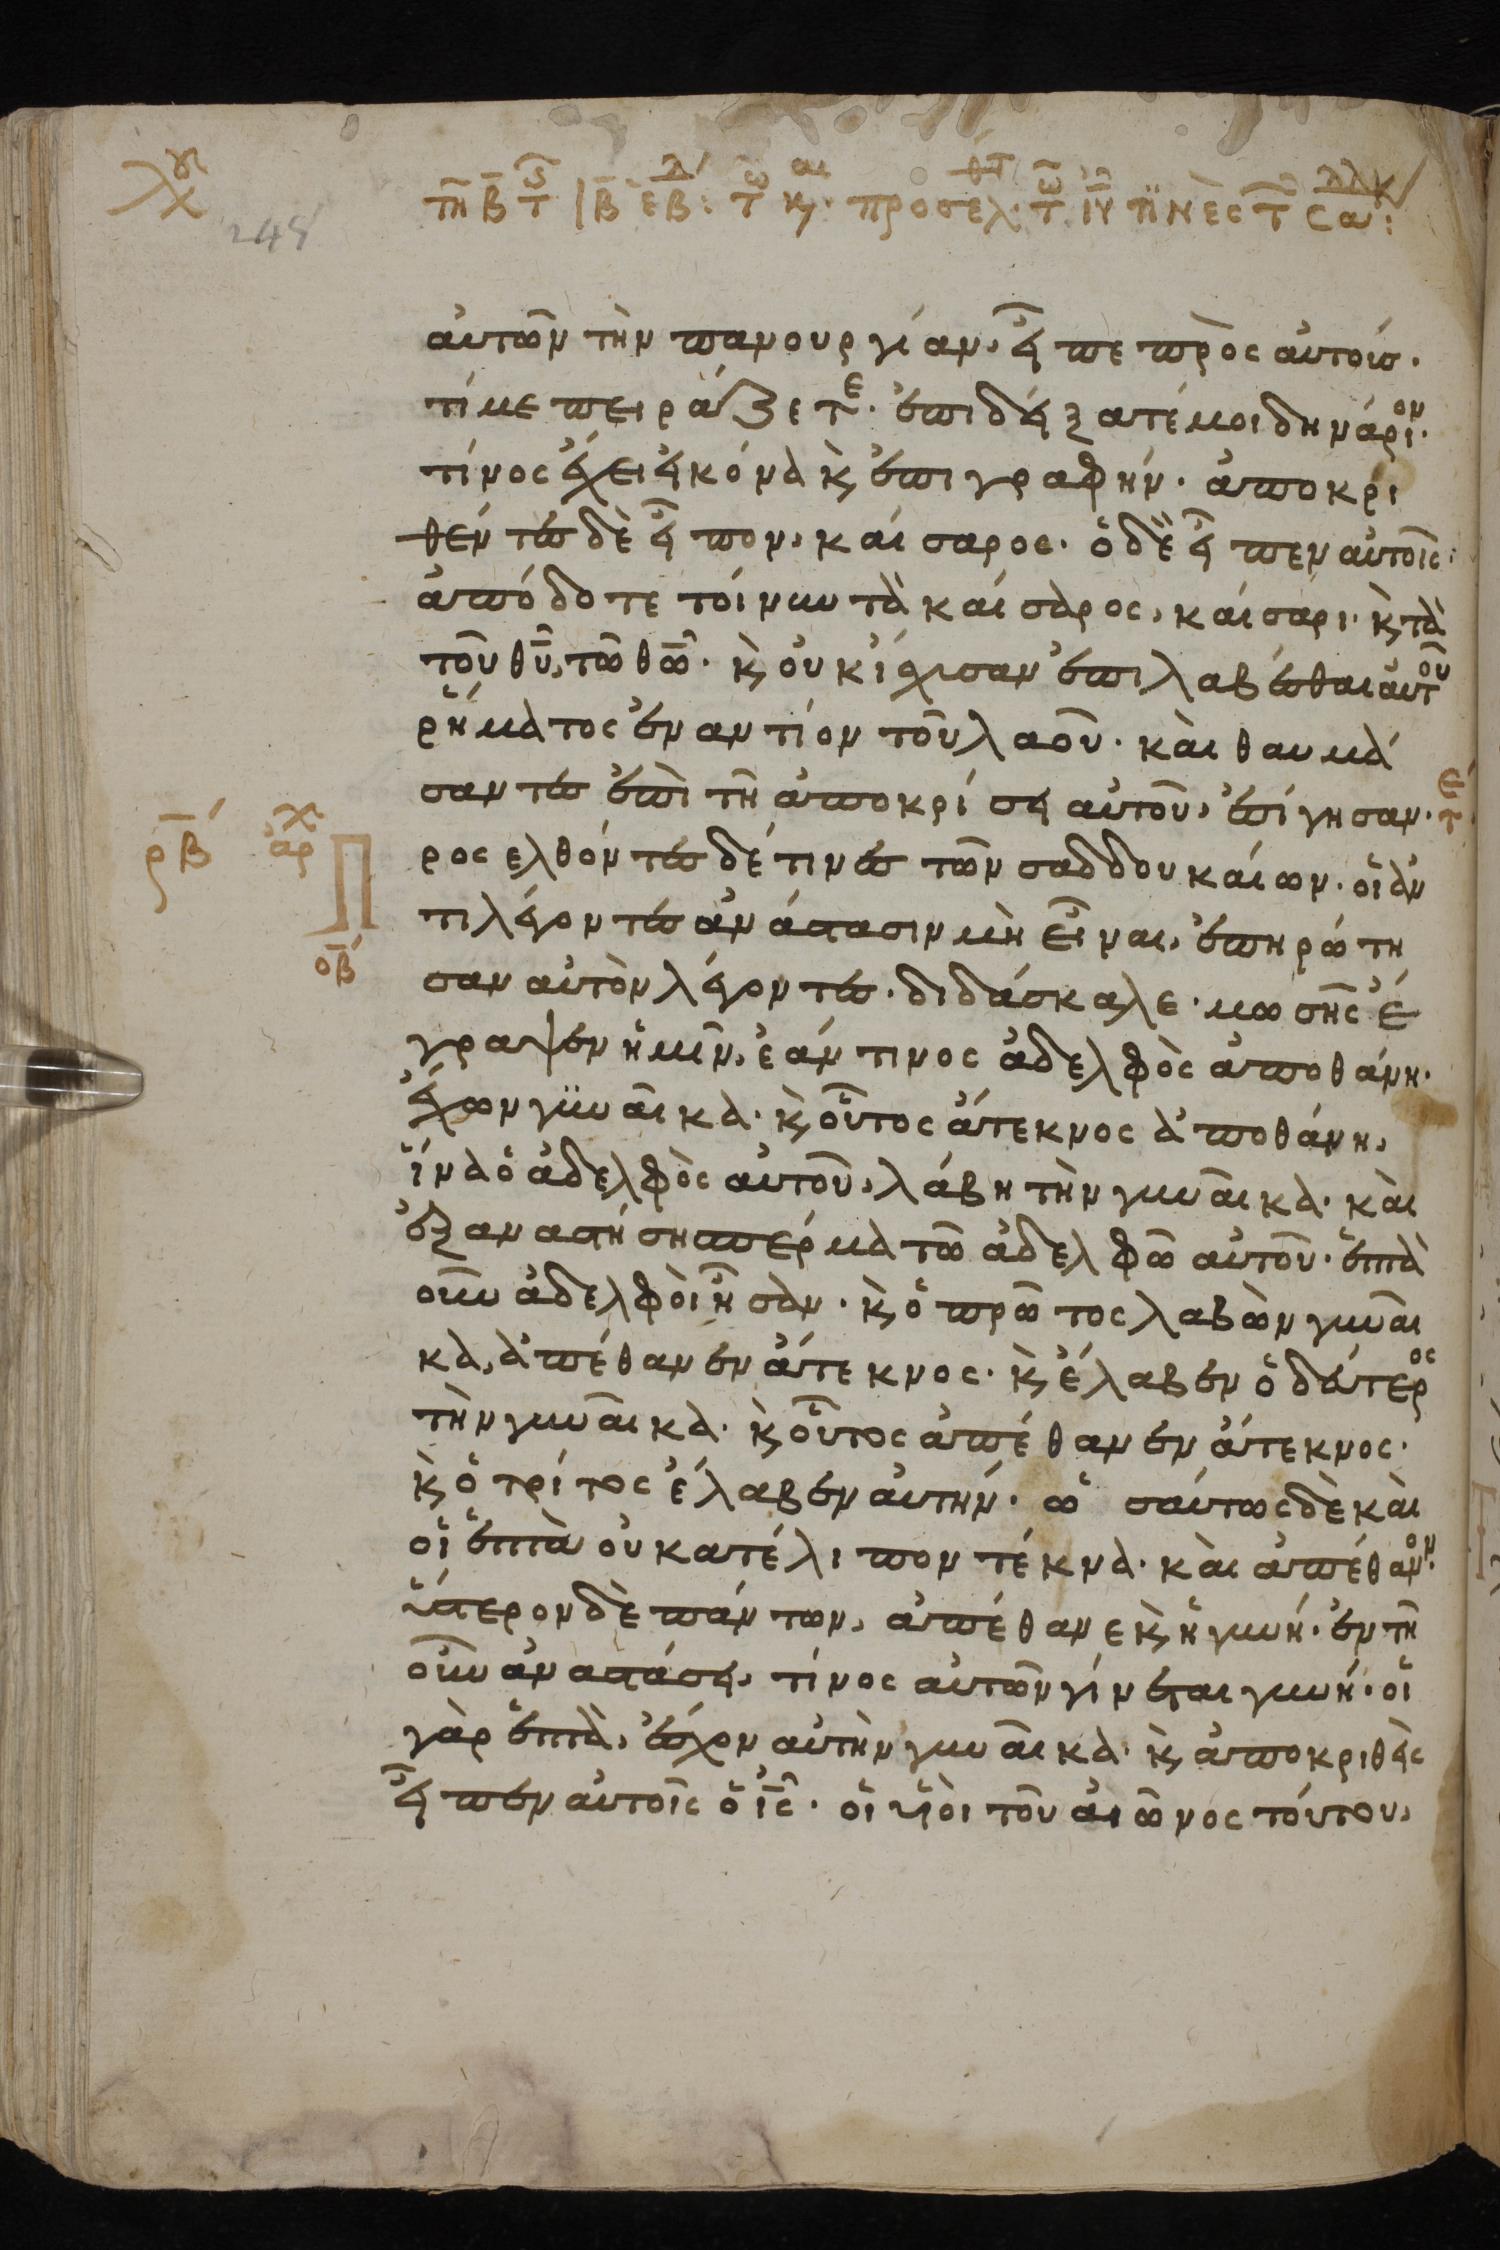 αὐτῶν τὴν πανουργίαν, εἶπε πρὸς αὐτοίσ·
τί με πειράζετε· ἐπιδείξατέ μοι δηνάριον·
τίνος ἔχει εἰκόνα κ̀ ἐπιγραφήν· ἀποκρι
θέντες δὲ εἶπον, καίσαρος· ὁ δὲ εἶπεν αὐτοῖς·
ἀπόδοτε τοίνυν τὰ καίσαρος, καίσαρι· κ̀ τὰ
τοῦ θ̅υ̅, τῶ θ̅ω̅· κ̀ οὐκ ἴσχυσαν ἐπιλαβέσθαι αὐτοῦ
ῥήματος ἐναντίον τοῦ λαοῦ· καὶ θαυμά
σαντες ἐπὶ τῆ ἀποκρίσει αὐτοῦ, ἐσίγησαν·
ρ̅β̅ ἀρχ
ο̅β̅
Προσελθόντες δέ τινες τῶν σαδδουκαίων· οἱ ἀν
τιλέγοντες ἀνάστασιν μὴ εἶναι, ἐπηρώτη
σαν αὐτὸν λέγοντες· διδάσκαλε· μωσῆς ἔ
γραψεν ἡμῖν, ἐάν τινος ἀδελφὸς ἀποθάνη·
ἔχων γυναῖκα· κ̀ οὗτος ἄτεκνος ἀποθάνη,
ἵνα ὁ ἀδελφὸς αὐτοῦ, λάβη τὴν γυναῖκα· καὶ
ἐξαναστήση σπέρμα τῶ ἀδελφῶ αὐτοῦ· ἑπτὰ
οὖν ἀδελφοὶ ἦσαν· κ̀ ὁ πρῶτος λαβὼν γυναῖ
κα, ἀπέθανεν ἄτεκνος· κ̀ ἔλαβεν ὁ δεύτερος
τὴν γυναῖκα· κ̀ οὗτος ἀπέθανεν ἄτεκνος·
κ̀ ὁ τρίτος ἔλαβεν αὐτήν· ὡσαύτως δὲ καὶ
οἱ ἑπτὰ οὐ κατέλιπον τέκνα· καὶ ἀπέθανον·
ὕστερον δὲ πάντων, ἀπέθανε κ̀ ἡ γυνή· ἐν τῆ
οὖν ἀναστάσει, τίνος αὐτῶν γίνεται γυνή· οἱ
γὰρ ἑπτὰ, ἔσχον αὐτὴν γυναῖκα· κ̀ ἀποκριθεὶς
εἶπεν αὐτοῖς ὁ ι̅ς̅· οἱ υἱοὶ τοῦ αἰῶνος τούτου,